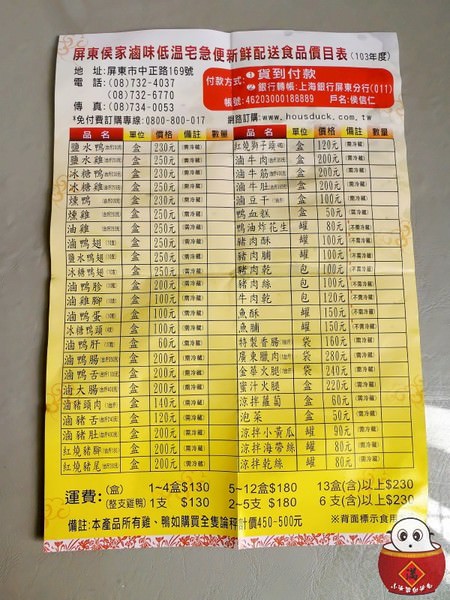 屏東侯家滷味低温宅急便新鮮配送食品價目表(103年度)
地　址:屏東市中正路169號
電　話:(08)732-4037
(08)732-6770
傳　真:(08)734-0053
*免付費訂購專線:0800-800-017
付款方式:①貨到付款
②銀行轉帳:上海銀行屏東分行(011)
帳號:46203000188889　戶名:侯信仁
網路訂購:www.housduck.com.tw
品名 單位 價格 備註 數量
鹽水鴨 盒 230元 (需冷藏)
鹽水雞 盒 250元 (需冷藏)
冰糖鴨 盒 230元 (需冷藏)
冰糖雞 盒 250元 (需冷藏)
燻鴨 盒 230元 (需冷藏)
燻雞 盒 250元 (需冷藏)
油雞 盒 250元 (需冷藏)
滷鴨翅 盒 200元 (需冷藏)
鹽水鴨翅 盒 200元 (需冷藏)
冰糖鴨翅 盒 200元 (需冷藏)
滷鴨胗 盒 200元 (需冷藏)
滷雞腳 盒 100元 (需冷藏)
滷鴨蛋 盒 100元 (需冷藏)
冰糖鴨頭 盒 100元 (需冷藏)
滷鴨肝 盒 60元 (需冷藏)
滷鴨腸 盒 200元 (需冷藏)
滷鴨舌 盒 200元 (需冷藏)
滷大腸 盒 200元 (需冷藏)
滷豬頭肉 盒 140元 (需冷藏)
滷豬舌 盒 120元 (需冷藏)
滷豬肚 盒 200元 (需冷藏)
紅燒豬腳 盒 100元 (需冷藏)
紅燒豬尾 盒 200元 (需冷藏)
品名 單位 價格 備註 數量
紅燒獅子頭 盒 120元 (需冷藏)
滷牛肉 盒 200元 (需冷藏)
滷牛筋 盒 200元 (需冷藏)
滷牛肚 盒 200元 (需冷藏)
滷豆干 盒 100元 (需冷藏)
鴨血糕 盒 50元 (需冷藏)
鴨油炸花生 罐 80元 (不需冷藏)
豬肉酥 罐 100元 (不需冷藏)
豬肉脯 罐 100元 (不需冷藏)
豬肉乾 包 100元 (不需冷藏)
豬肉乾 包 100元 (不需冷藏)
牛肉乾 包 120元 (不需冷藏)
魚酥 罐 150元 (不需冷藏)
魚脯 罐 150元 (不需冷藏)
特製香腸 袋 160元 (需冷藏)
廣東臘肉 袋 280元 (需冷藏)
金華火腿 袋 240元 (需冷藏)
蜜汁火腿 盒 220元 (需冷藏)
涼拌蘿蔔 盒 60元 (需冷藏)
泡菜 盒 50元 (需冷藏)
涼拌小黃瓜 罐 90元 (需冷藏)
涼拌海帶絲 罐 80元 (需冷藏)
涼拌乾絲 罐 80元 (需冷藏)
運費:(盒) 1~4盒$130 5~12盒$180 13盒(含)以上$230
(整支雞鴨) 1支 $130 2~5支 $180 6支(含)以上$230
備註:本產品所有雞、鴨如購買全隻論秤計價450-500元
※背面標示食用